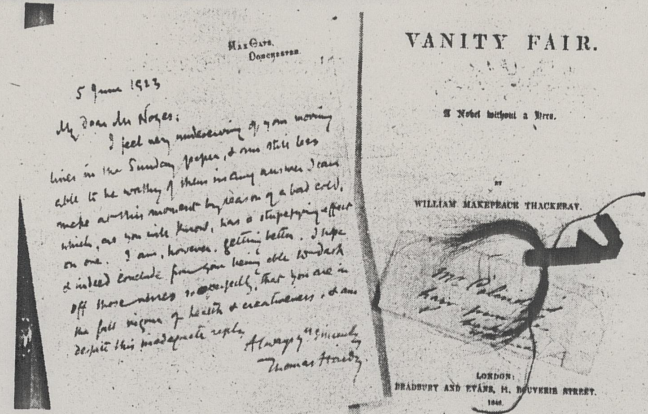 MAX GATE,
DORCHESTER.
5 June 1923
My Dear Mr Noyes:
I feel very undeserving of your moving
lines in the Sunday paper, & am still less
able to be worthy of them in any answer I can
make at this moment by reason of a bad cold,
which, as you will know, has a stupefying effect
on one. I am, however, getting better. I hope
& indeed conclude from your being able to dash
off those verses so that you are in
the full vigour of health & creativeness, & am
despite this inadequate reply
Always yrs Sincerely
Thomas Hardy
VANITY FAIR.
A Novel without a Hero.
BY
WILLIAM MAKEPEACE THACKERAY.
Mr
have
LONDON:
BRADBURY AND EVANS, 11, BOUVERIE STREET.
1848.